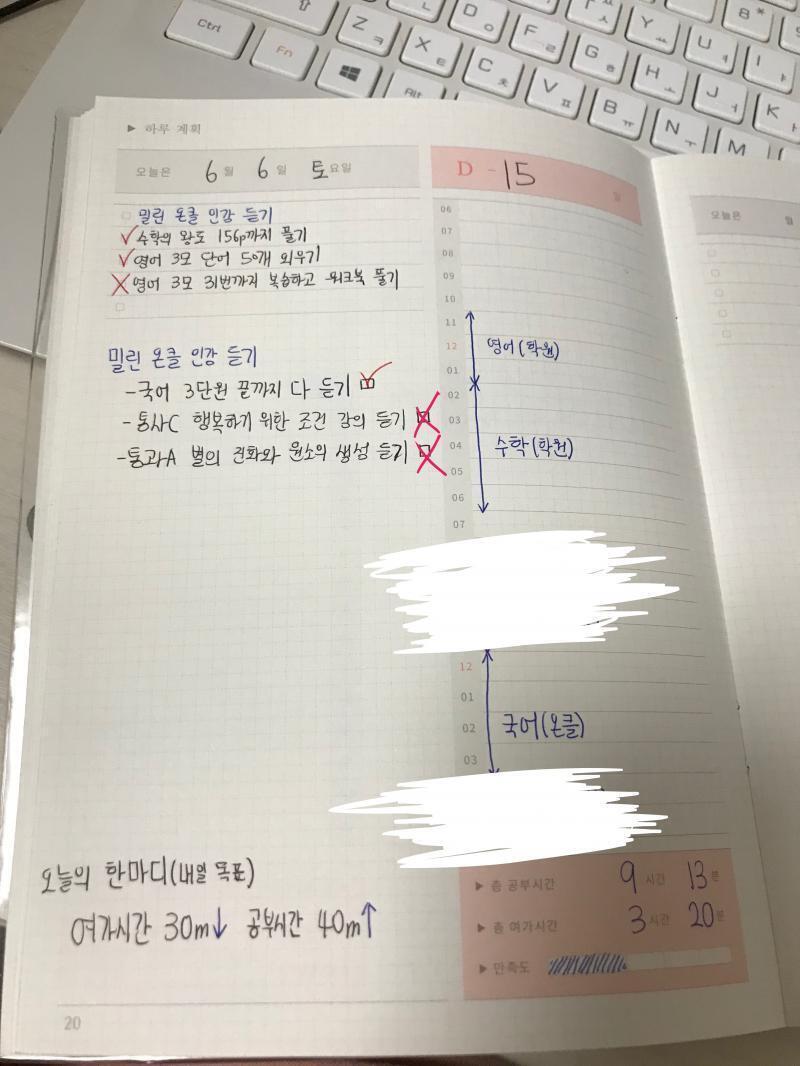 Ctrl
Fn
Alt
Z ㅋ
X ㅌ
C ㅊ
V ㅍ
B ㅠ
N ㅜ
M
D ㅇ
F ㄹ
G ㅎ
H ㅗ
J ㅓ
K ㅏ
Y ㅛ
U ㅕ
I ㅑ
8 *
▶ 하루 계획
오늘은 6월 6일 토요일
D - 15 일
밀린 온클 인강 듣기
수학의 왕도 156p까지 풀기
영어 3모 단어 50개 외우기
영어 3모 31번까지 복습하고 워크북 풀기
밀린 온클 인강 듣기
-국어 3단원 끝까지 다 듣기
-통사C 행복하기 위한 조건 강의 듣기
-통과A 별의 진화와 원소의 생성 듣기
06
07
08
09
10
11
12 영어(학원)
01
02
03
04 수학(학원)
05
06
07
12
01
02 국어(온클)
03
오늘의 한마디(내일 목표)
여가시간 30m↓ 공부시간 40m↑
▶ 총 공부시간 9시간 13분
▶ 총 여가시간 3시간 20분
▶ 만족도
20
오늘은 월